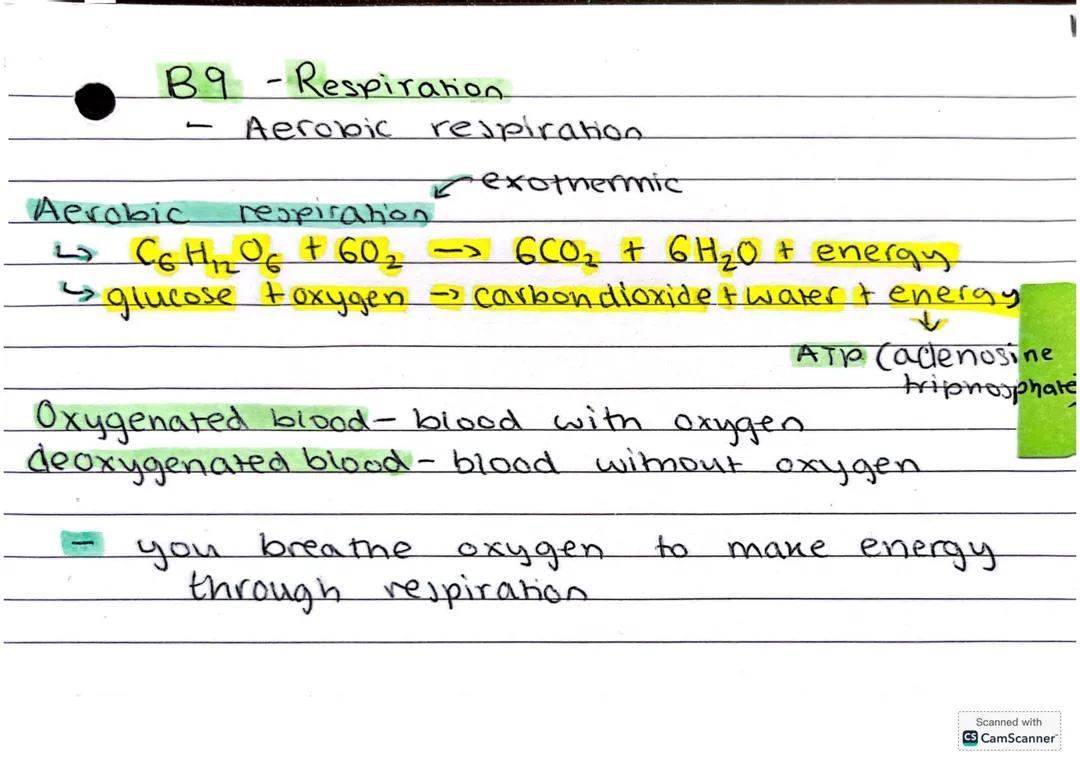 B9 - Respiration
- Aerobic respiration
exothermic
Aerobic respiration
↳ C₆H₁₂O₆ + 6O₂ → 6CO₂ + 6H₂O + energy
↳ glucose + oxygen → carbon dioxide + water + energy
↓
ATP (adenosine
triphosphate)
Oxygenated blood - blood with oxygen
deoxygenated blood - blood without oxygen
- you breathe oxygen to make energy
through respiration
Scanned with
CS CamScanner